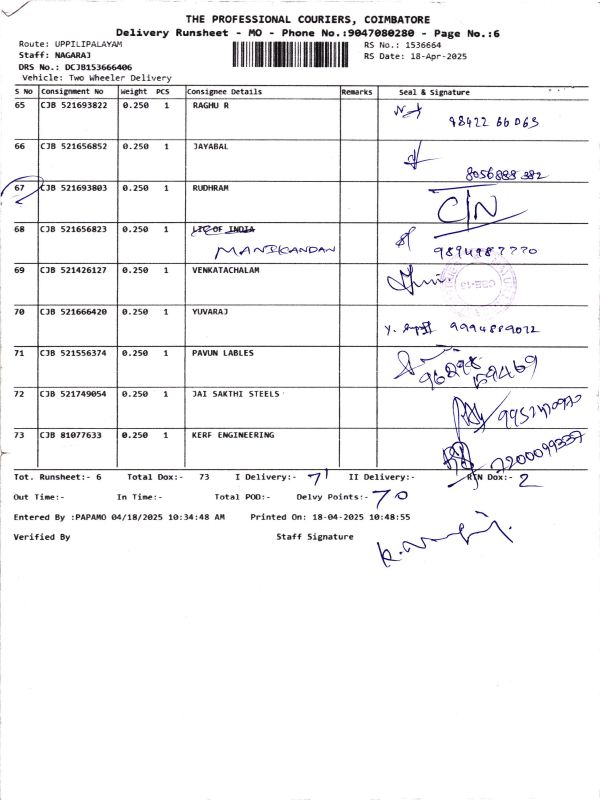 THE PROFESSIONAL COURIERS, COIMBATORE
Delivery Runsheet - MO - Phone No.:9047080280 - Page No.:6
Route: UPPILIPALAYAM RS No.: 1536664
Staff: NAGARAJ RS Date: 18-Apr-2025
DRS No.: DCJB153666406
Vehicle: Two Wheeler Delivery
S No Consignment No Weight PCS Consignee Details Remarks Seal & Signature
65 CJB 521693822 0.250 1 RAGHU R
98422 66063
66 CJB 521656852 0.250 1 JAYABAL
8056888382
67 CJB 521693803 0.250 1 RUDHRAM
C/N
68 CJB 521656823 0.250 1 LIC OF INDIA
MANIKANDAN 9894987770
69 CJB 521426127 0.250 1 VENKATACHALAM
70 CJB 521666420 0.250 1 YUVARAJ
9994889072
71 CJB 521556374 0.250 1 PAVUN LABLES
72 CJB 521749054 0.250 1 JAI SAKTHI STEELS
73 CJB 81077633 0.250 1 KERF ENGINEERING
7200099337
Tot. Runsheet:- 6 Total Dox:- 73 I Delivery:- 71 II Delivery:- RTN Dox:- 2
Out Time:- In Time:- Total POD:- Delvy Points:- 70
Entered By :PAPAMO 04/18/2025 10:34:48 AM Printed On: 18-04-2025 10:48:55
Verified By Staff Signature